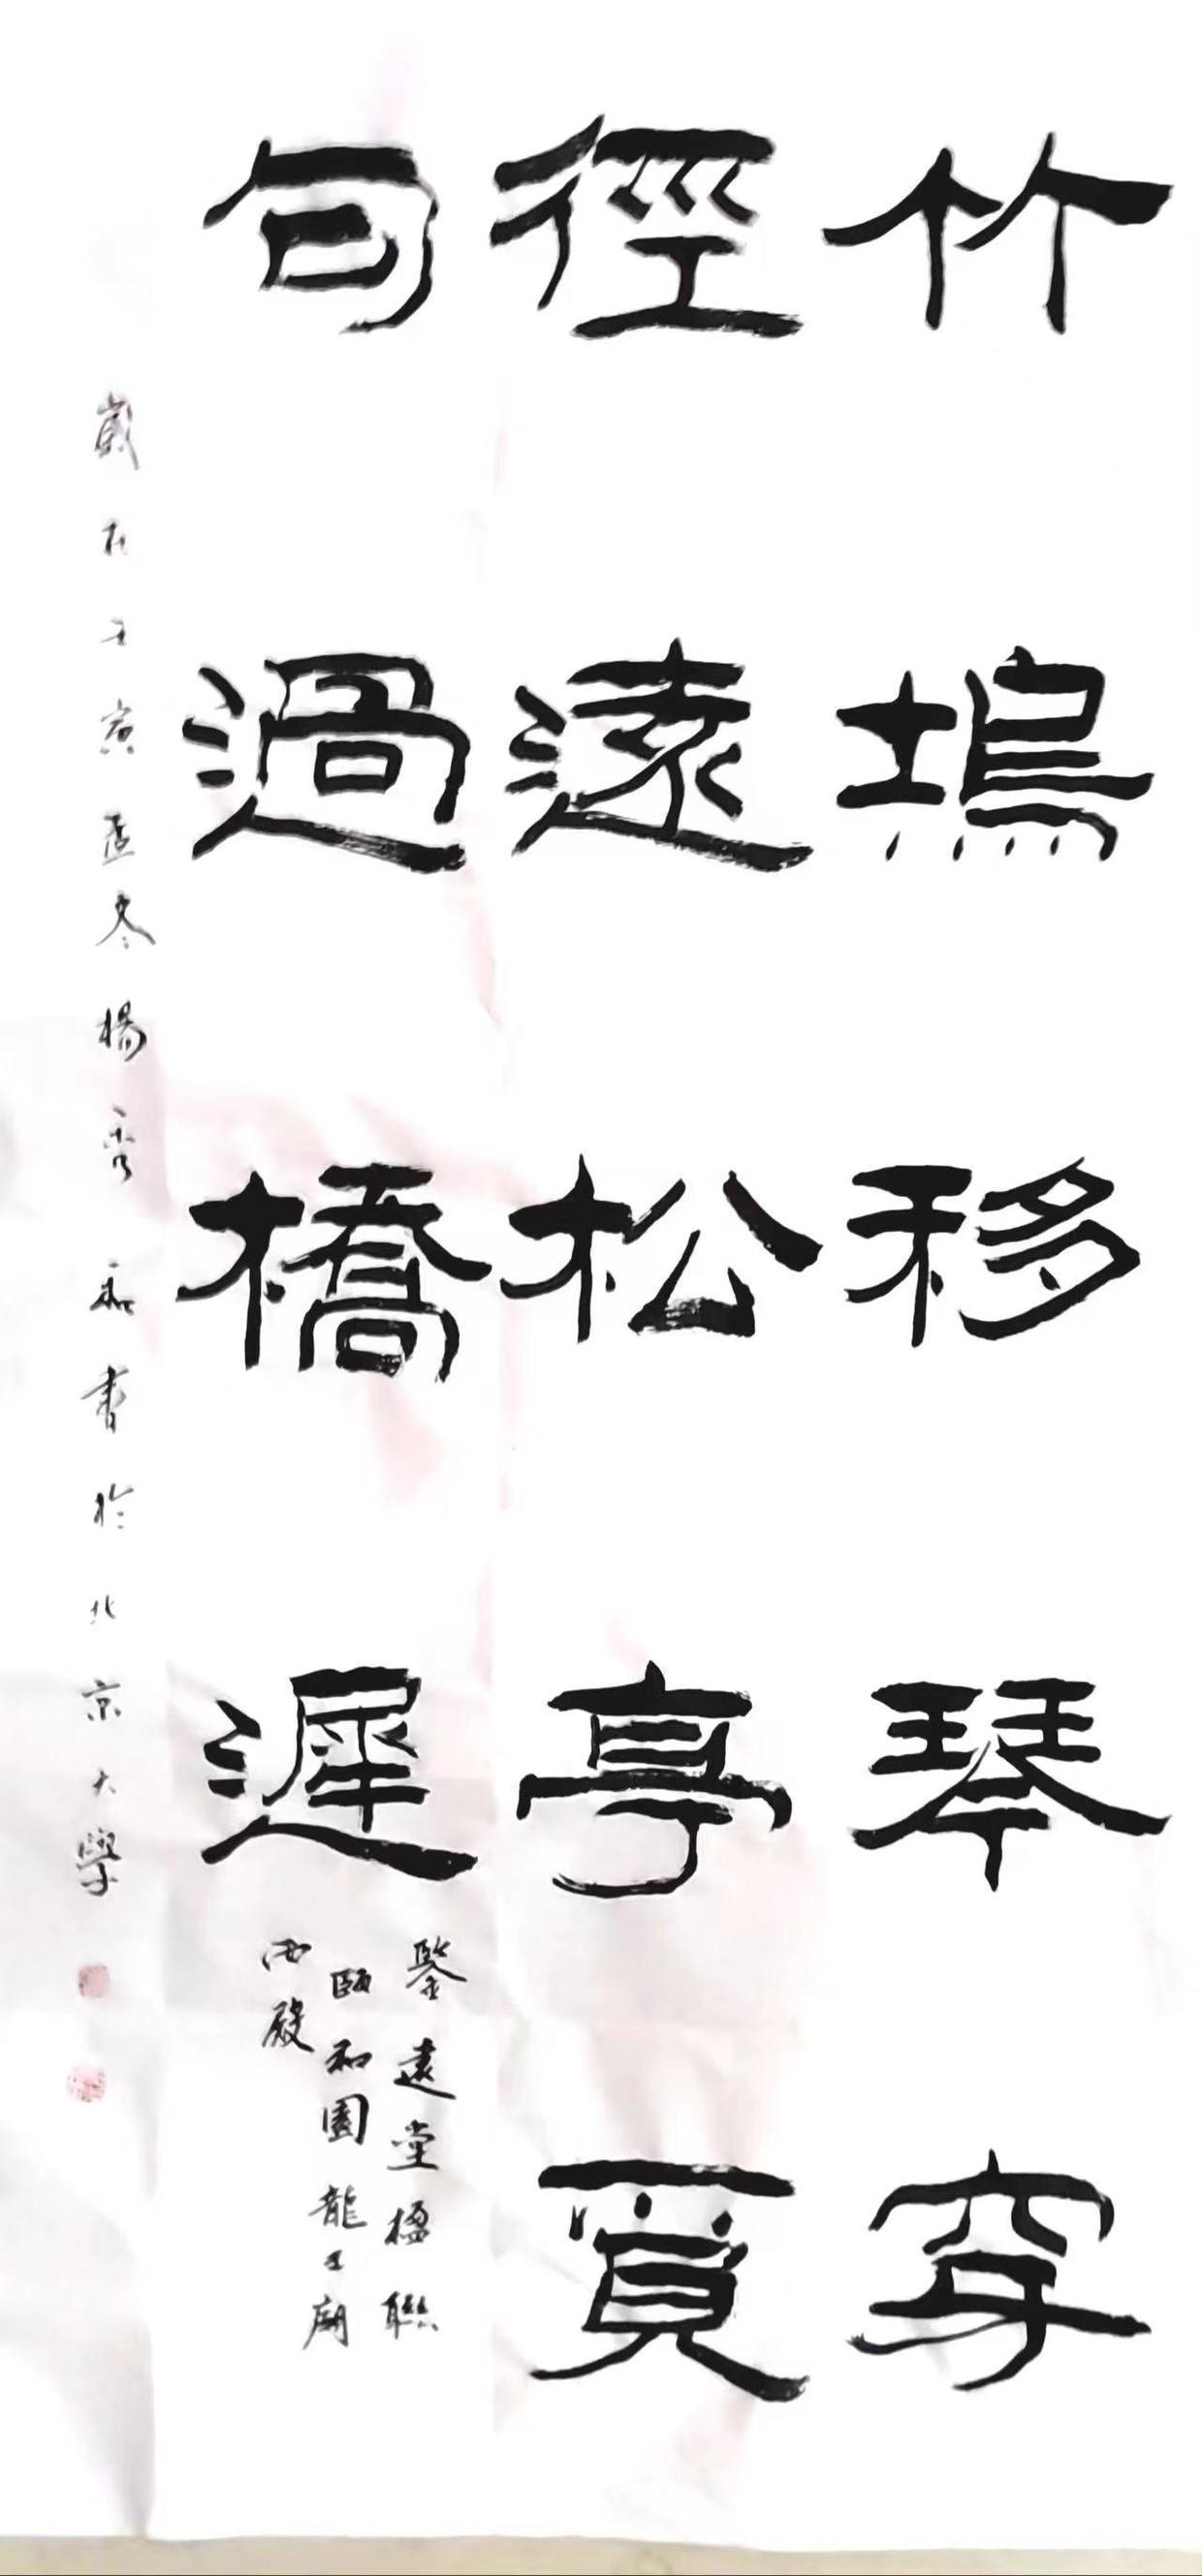 竹塢移琴穿
徑遠松亭覓
句過橋遲
鑒遠堂楹聯
頤和園龍王廟
西殿
歲在壬寅孟冬楊秀和書於北京大學